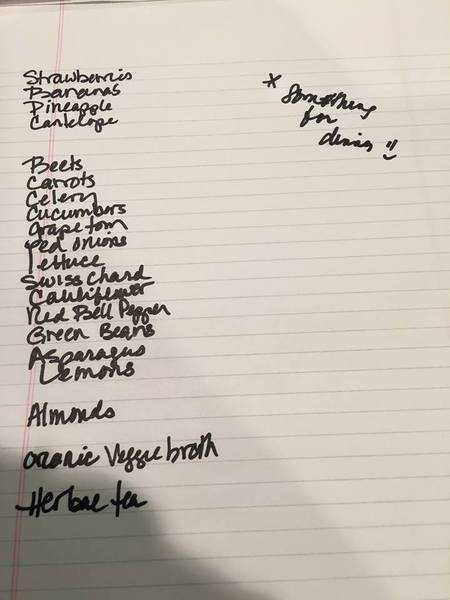 Strawberries
Bananas
Pineapple
Cantelope
* Something
for
dinner :)
Beets
Carrots
Celery
Cucumbers
grape tom
Red onions
lettuce
Swiss Chard
Cauliflower
Red Bell Pepper
Green Beans
Asparagus
Lemons
Almonds
Organic Veggie broth
Herbal tea